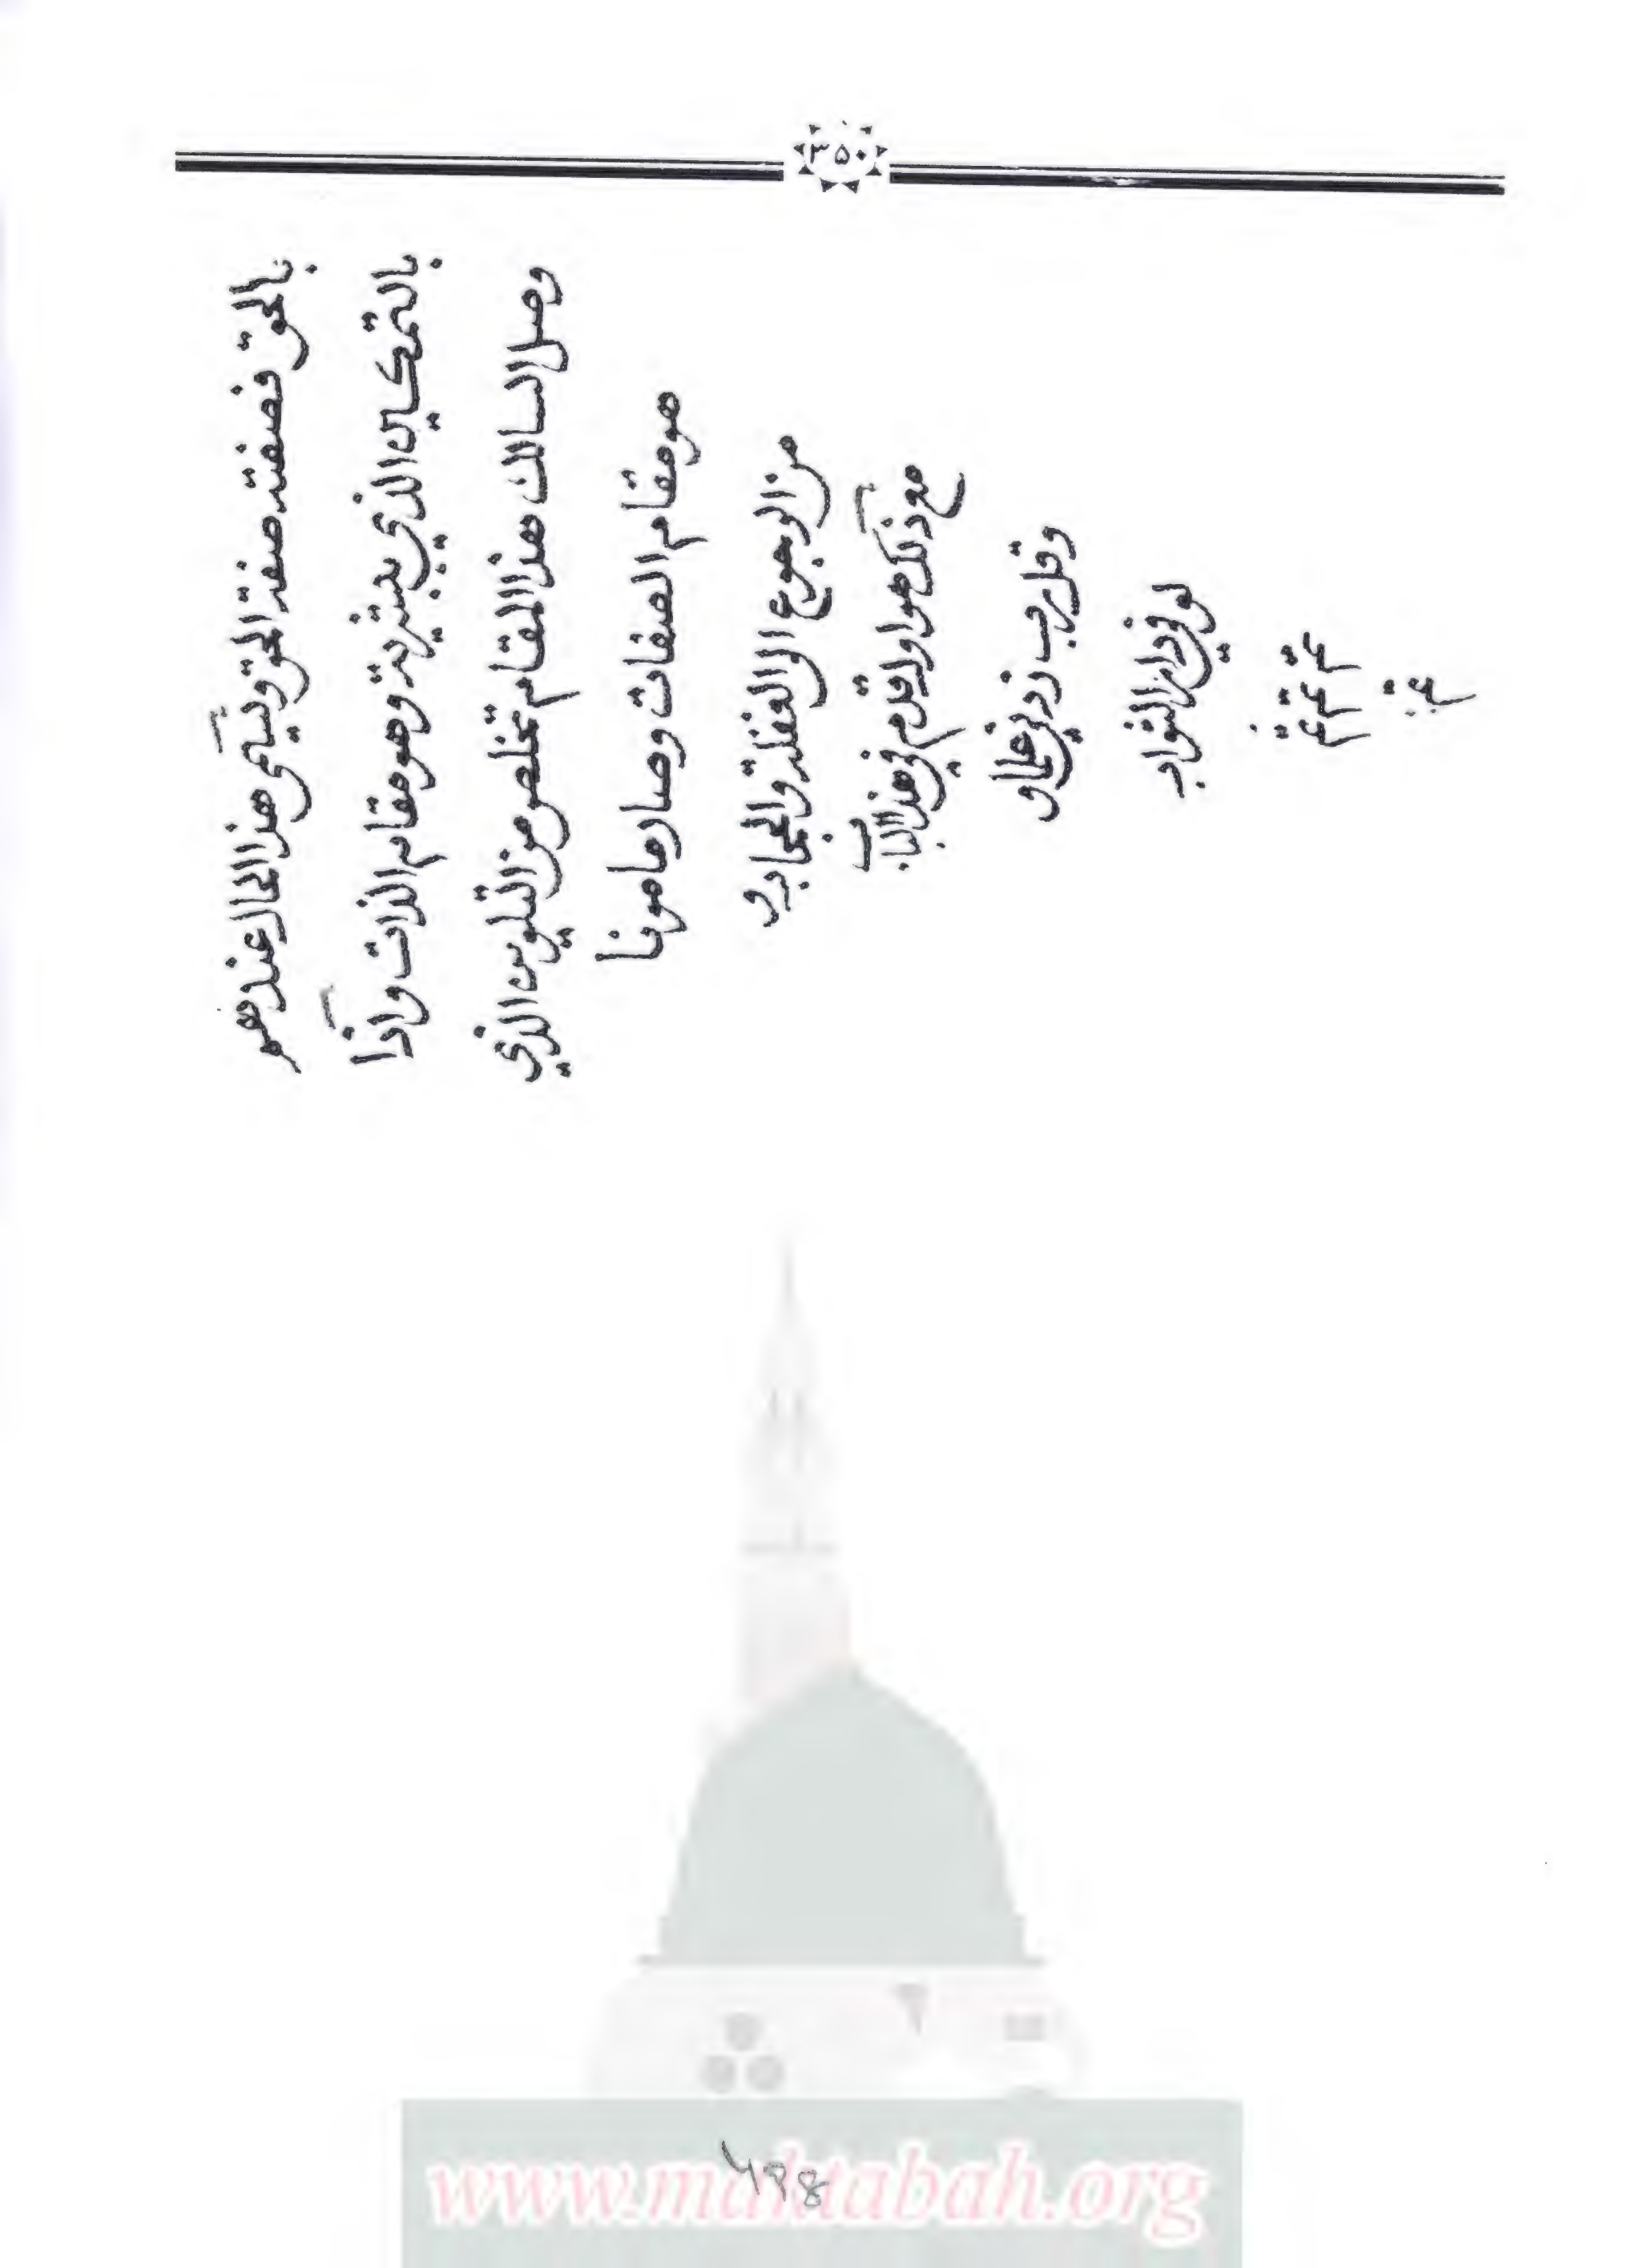 ۳۵۰
بالحق فصفته صفة الحق ويسمى هذا الحال عندهم
بالتمكين الذي وهو مقام الذات واذا
وصل السالك هذا المقام تخلص من التلوين الذي
هو مقام الصفات وصار مامونا
من الرجوع الى الغفلة و
مع ذلك هو اول قدم في هذا الباب
وقل رب زدني علما و
لو في دار الثواب
www.maktabah.org